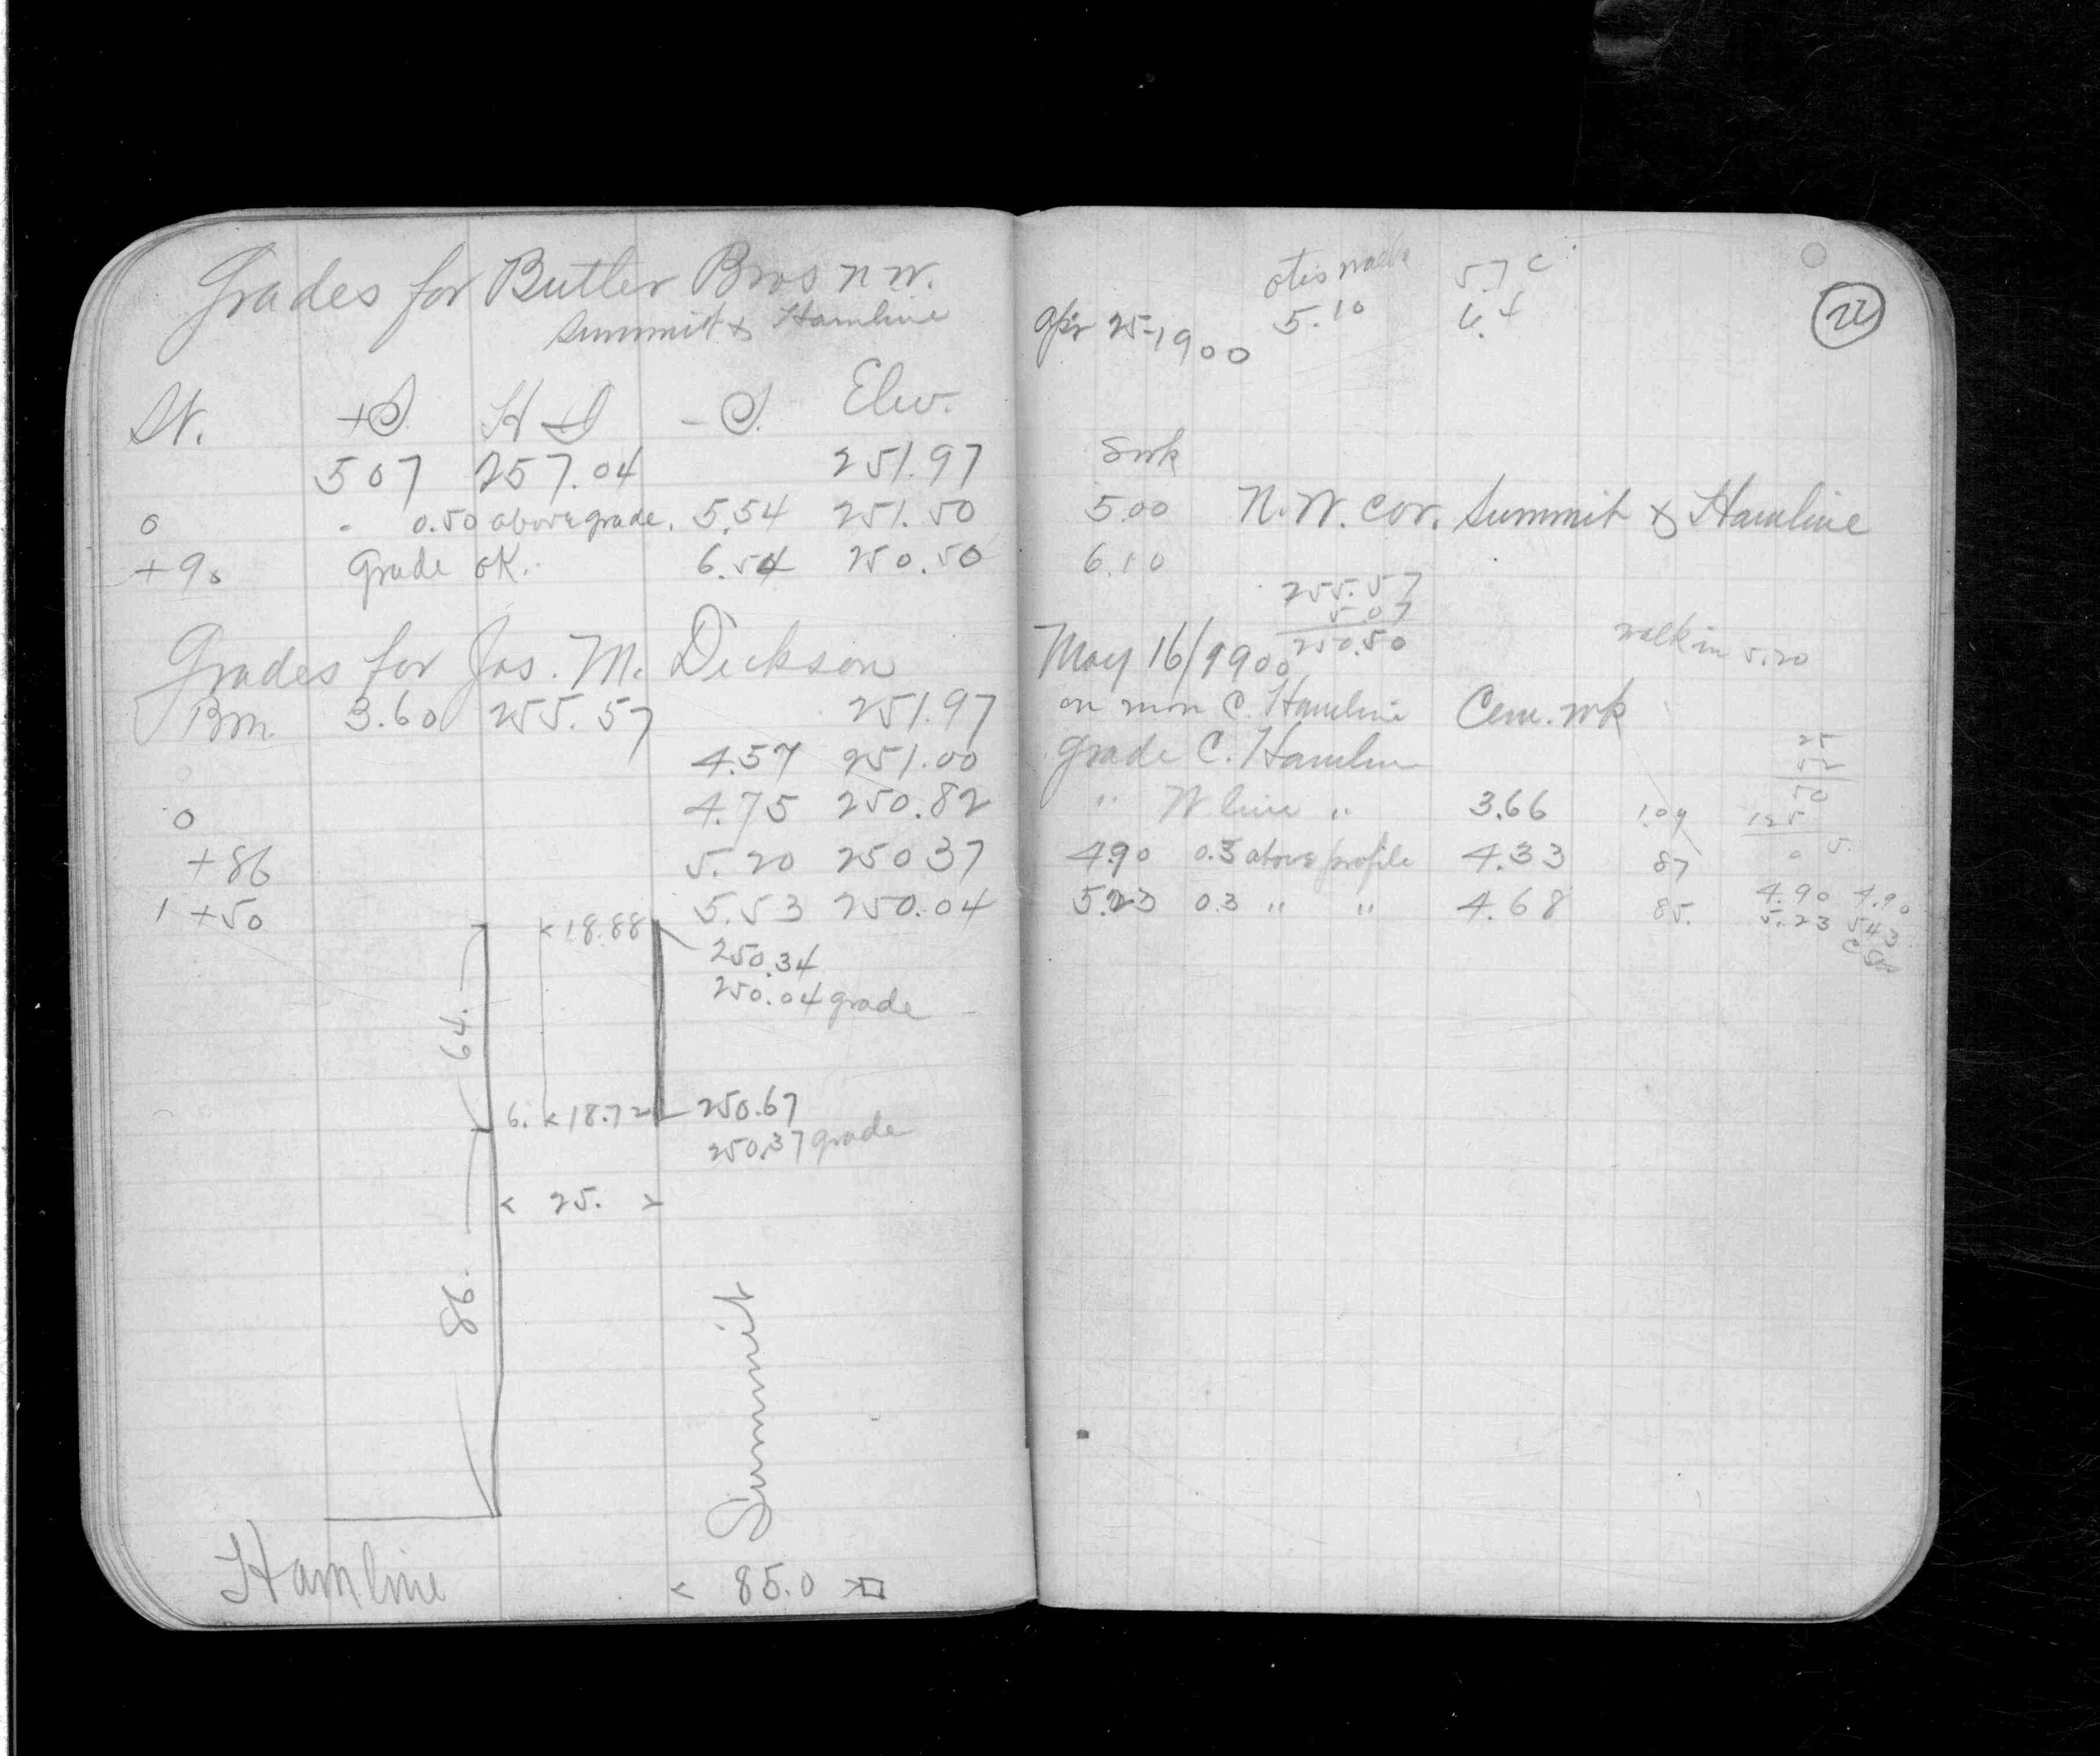 Grades for Butler Bros N W.
Summit & Hamline
St. +S H I - S. Elev.
507 257.04 251.97
0 - 0.50 above grade. 5.54 251.50
+90 Grade OK. 6.54 250.50
Grades for Jas. M. Dickson
Bm. 3.60 255.57 251.97
4.57 251.00
0 4.75 250.82
+86 5.20 250 37
1 +50 5.53 250.04
< 18.88
250.34
250.04 grade
64.
6. < 18.72 250.67
250.37 grade
< 25. >
86.
Summit
Hamline
< 85.0 >
5.7
Apr 25-1900 5.10
22
Swk
5.00 N.W. cor. Summit & Hamline
6.10
255.57
5 07
250.50
May 16/1900
walk in 5.20
on mon C. Hamline Cem. wk
grade C. Hamline
" W line " 3.66 1.09
4.90 0.3 above profile 4.33 87
5.23 0.3 " " 4.68 85.
25
50
4.90 4.90
5.23 5 43